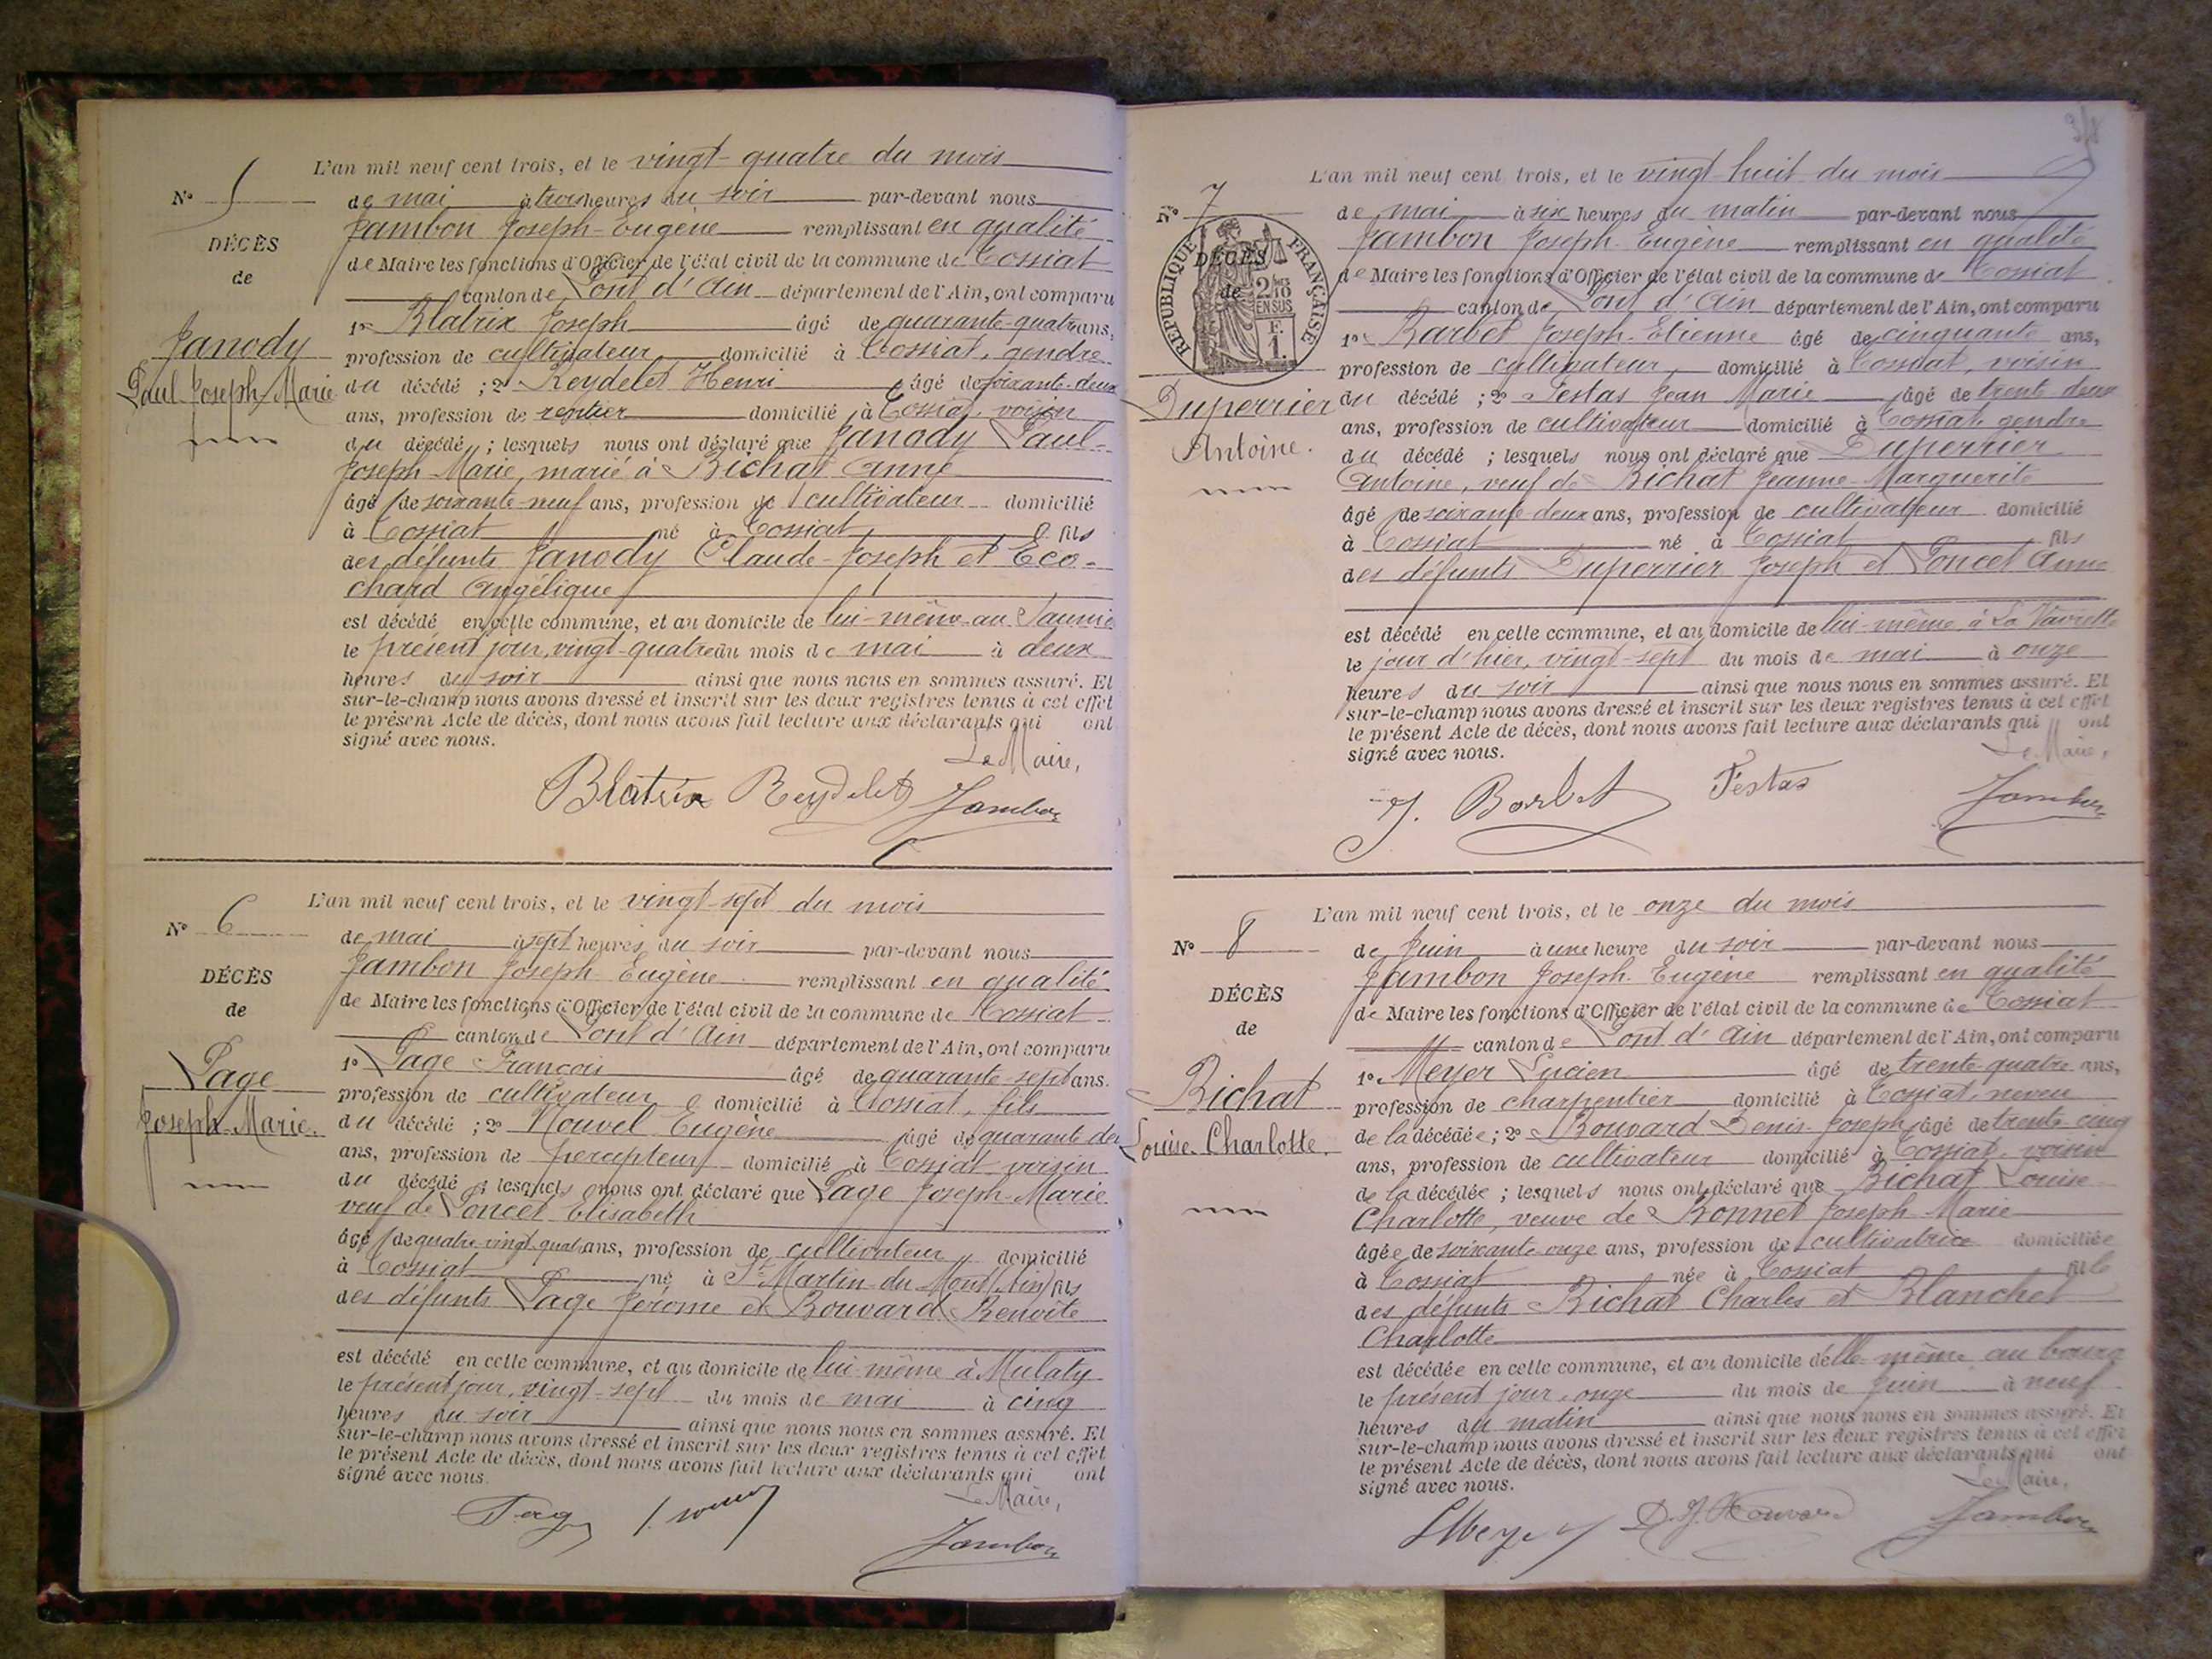 L'an mil neuf cent trois, et le vingt-quatre du mois
N° 5
de mai à trois heures du soir par-devant nous
Jambon Joseph-Eugène remplissant en qualité
DÉCÈS
de Maire les fonctions d'Officier de l'état civil de la commune de Tossiat
de
canton de Pont d'Ain département de l'Ain, ont comparu
1° Blatrix Joseph âgé de quarante-quatre ans,
Janody
profession de cultivateur domicilié à Tossiat, gendre
Paul Joseph Marie
du décédé ; 2° Reydelet Henri âgé de soixante-deux
ans, profession de rentier domicilié à Tossiat, voisin
du décédé ; lesquels nous ont déclaré que Janody Paul-
Joseph-Marie, marié à Bichat Anne
âgé de soixante-neuf ans, profession de cultivateur domicilié
à Tossiat né à Tossiat fils
des défunts Janody Claude-Joseph et Eco-
chard Angélique
est décédé en cette commune, et au domicile de lui-même au
le présent jour, vingt-quatre du mois de mai à deux
heures du soir ainsi que nous nous en sommes assuré. Et
sur-le-champ nous avons dressé et inscrit sur les deux registres tenus à cet effet
le présent Acte de décès, dont nous avons fait lecture aux déclarants qui ont
signé avec nous.
Le Maire,
Blatrix Reydelet Jambon
L'an mil neuf cent trois, et le vingt-sept du mois
N° 6
de mai à sept heures du soir par-devant nous
Jambon Joseph Eugène remplissant en qualité
DÉCÈS
de Maire les fonctions d'Officier de l'état civil de la commune de Tossiat
de
canton de Pont d'Ain département de l'Ain, ont comparu
Page
1° Page François âgé de quarante-sept ans.
profession de cultivateur domicilié à Tossiat, fils
Joseph-Marie.
du décédé ; 2° Nouvel Eugène âgé de quarante deux
ans, profession de percepteur domicilié à Tossiat voisin
du décédé ; lesquels nous ont déclaré que Page Joseph-Marie
veuf de Poncet Elisabeth
âgé de quatre-vingt-quatre ans, profession de cultivateur domicilié
à Tossiat né à St Martin-du-Mont (Ain) fils
des défunts Page Jérome et Bouvard Benoite
est décédé en cette commune, et au domicile de lui-même à Mulaty
le présent jour, vingt-sept du mois de mai à cinq
heures du soir ainsi que nous nous en sommes assuré. Et
sur-le-champ nous avons dressé et inscrit sur les deux registres tenus à cet effet
le présent Acte de décès, dont nous avons fait lecture aux déclarants qui ont
signé avec nous.
Le Maire,
Page Jambon
L'an mil neuf cent trois, et le vingt-huit du mois
N° 7
de mai à six heures du matin par-devant nous
Jambon Joseph-Eugène remplissant en qualité
RÉPUBLIQUE FRANÇAISE
2/10 EN SUS
F. 1.
DÉCÈS
de Maire les fonctions d'Officier de l'état civil de la commune de Tossiat
de
canton de Pont d'Ain département de l'Ain, ont comparu
1° Barbet Joseph-Etienne âgé de cinquante ans,
profession de cultivateur, domicilié à Tossiat, voisin
Duperrier
du décédé ; 2° Festas Jean Marie âgé de trente deux
ans, profession de cultivateur domicilié à Tossiat, gendre
Antoine.
du décédé ; lesquels nous ont déclaré que Duperrier
Antoine, veuf de Bichat Jeanne-Marguerite
âgé de soixante deux ans, profession de cultivateur domicilié
à Tossiat né à Tossiat fils
des défunts Duperrier Joseph et Poncet Anne
est décédé en cette commune, et au domicile de lui-même, à La Vavrette
le jour d'hier, vingt-sept du mois de mai à onze
heures du soir ainsi que nous nous en sommes assuré. Et
sur-le-champ nous avons dressé et inscrit sur les deux registres tenus à cet effet
le présent Acte de décès, dont nous avons fait lecture aux déclarants qui ont
signé avec nous.
Le Maire,
J. Barbet Festas Jambon
L'an mil neuf cent trois, et le onze du mois
N° 8
de Juin à une heure du soir par-devant nous
Jambon Joseph-Eugène remplissant en qualité
DÉCÈS
de Maire les fonctions d'Officier de l'état civil de la commune de Tossiat
de
canton de Pont d'Ain département de l'Ain, ont comparu
1° Meyer Lucien âgé de trente-quatre ans,
Bichat
profession de charpentier domicilié à Tossiat, neveu
Louise-Charlotte.
de la décédée ; 2° Bouvard Denis-Joseph âgé de trente cinq
ans, profession de cultivateur domicilié à Tossiat, voisin
de la décédée ; lesquels nous ont déclaré que Bichat Louise
Charlotte, veuve de Bonnet Joseph-Marie
âgée de soixante-onze ans, profession de cultivatrice domiciliée
à Tossiat née à Tossiat fille
des défunts Bichat Charles et Blanchet
Charlotte
est décédée en cette commune, et au domicile d'elle-même au bourg
le présent jour, onze du mois de Juin à neuf
heures du matin ainsi que nous nous en sommes assuré. Et
sur-le-champ nous avons dressé et inscrit sur les deux registres tenus à cet effet
le présent Acte de décès, dont nous avons fait lecture aux déclarants qui ont
signé avec nous.
Le Maire,
LMeyer D. J. Bouvard Jambon